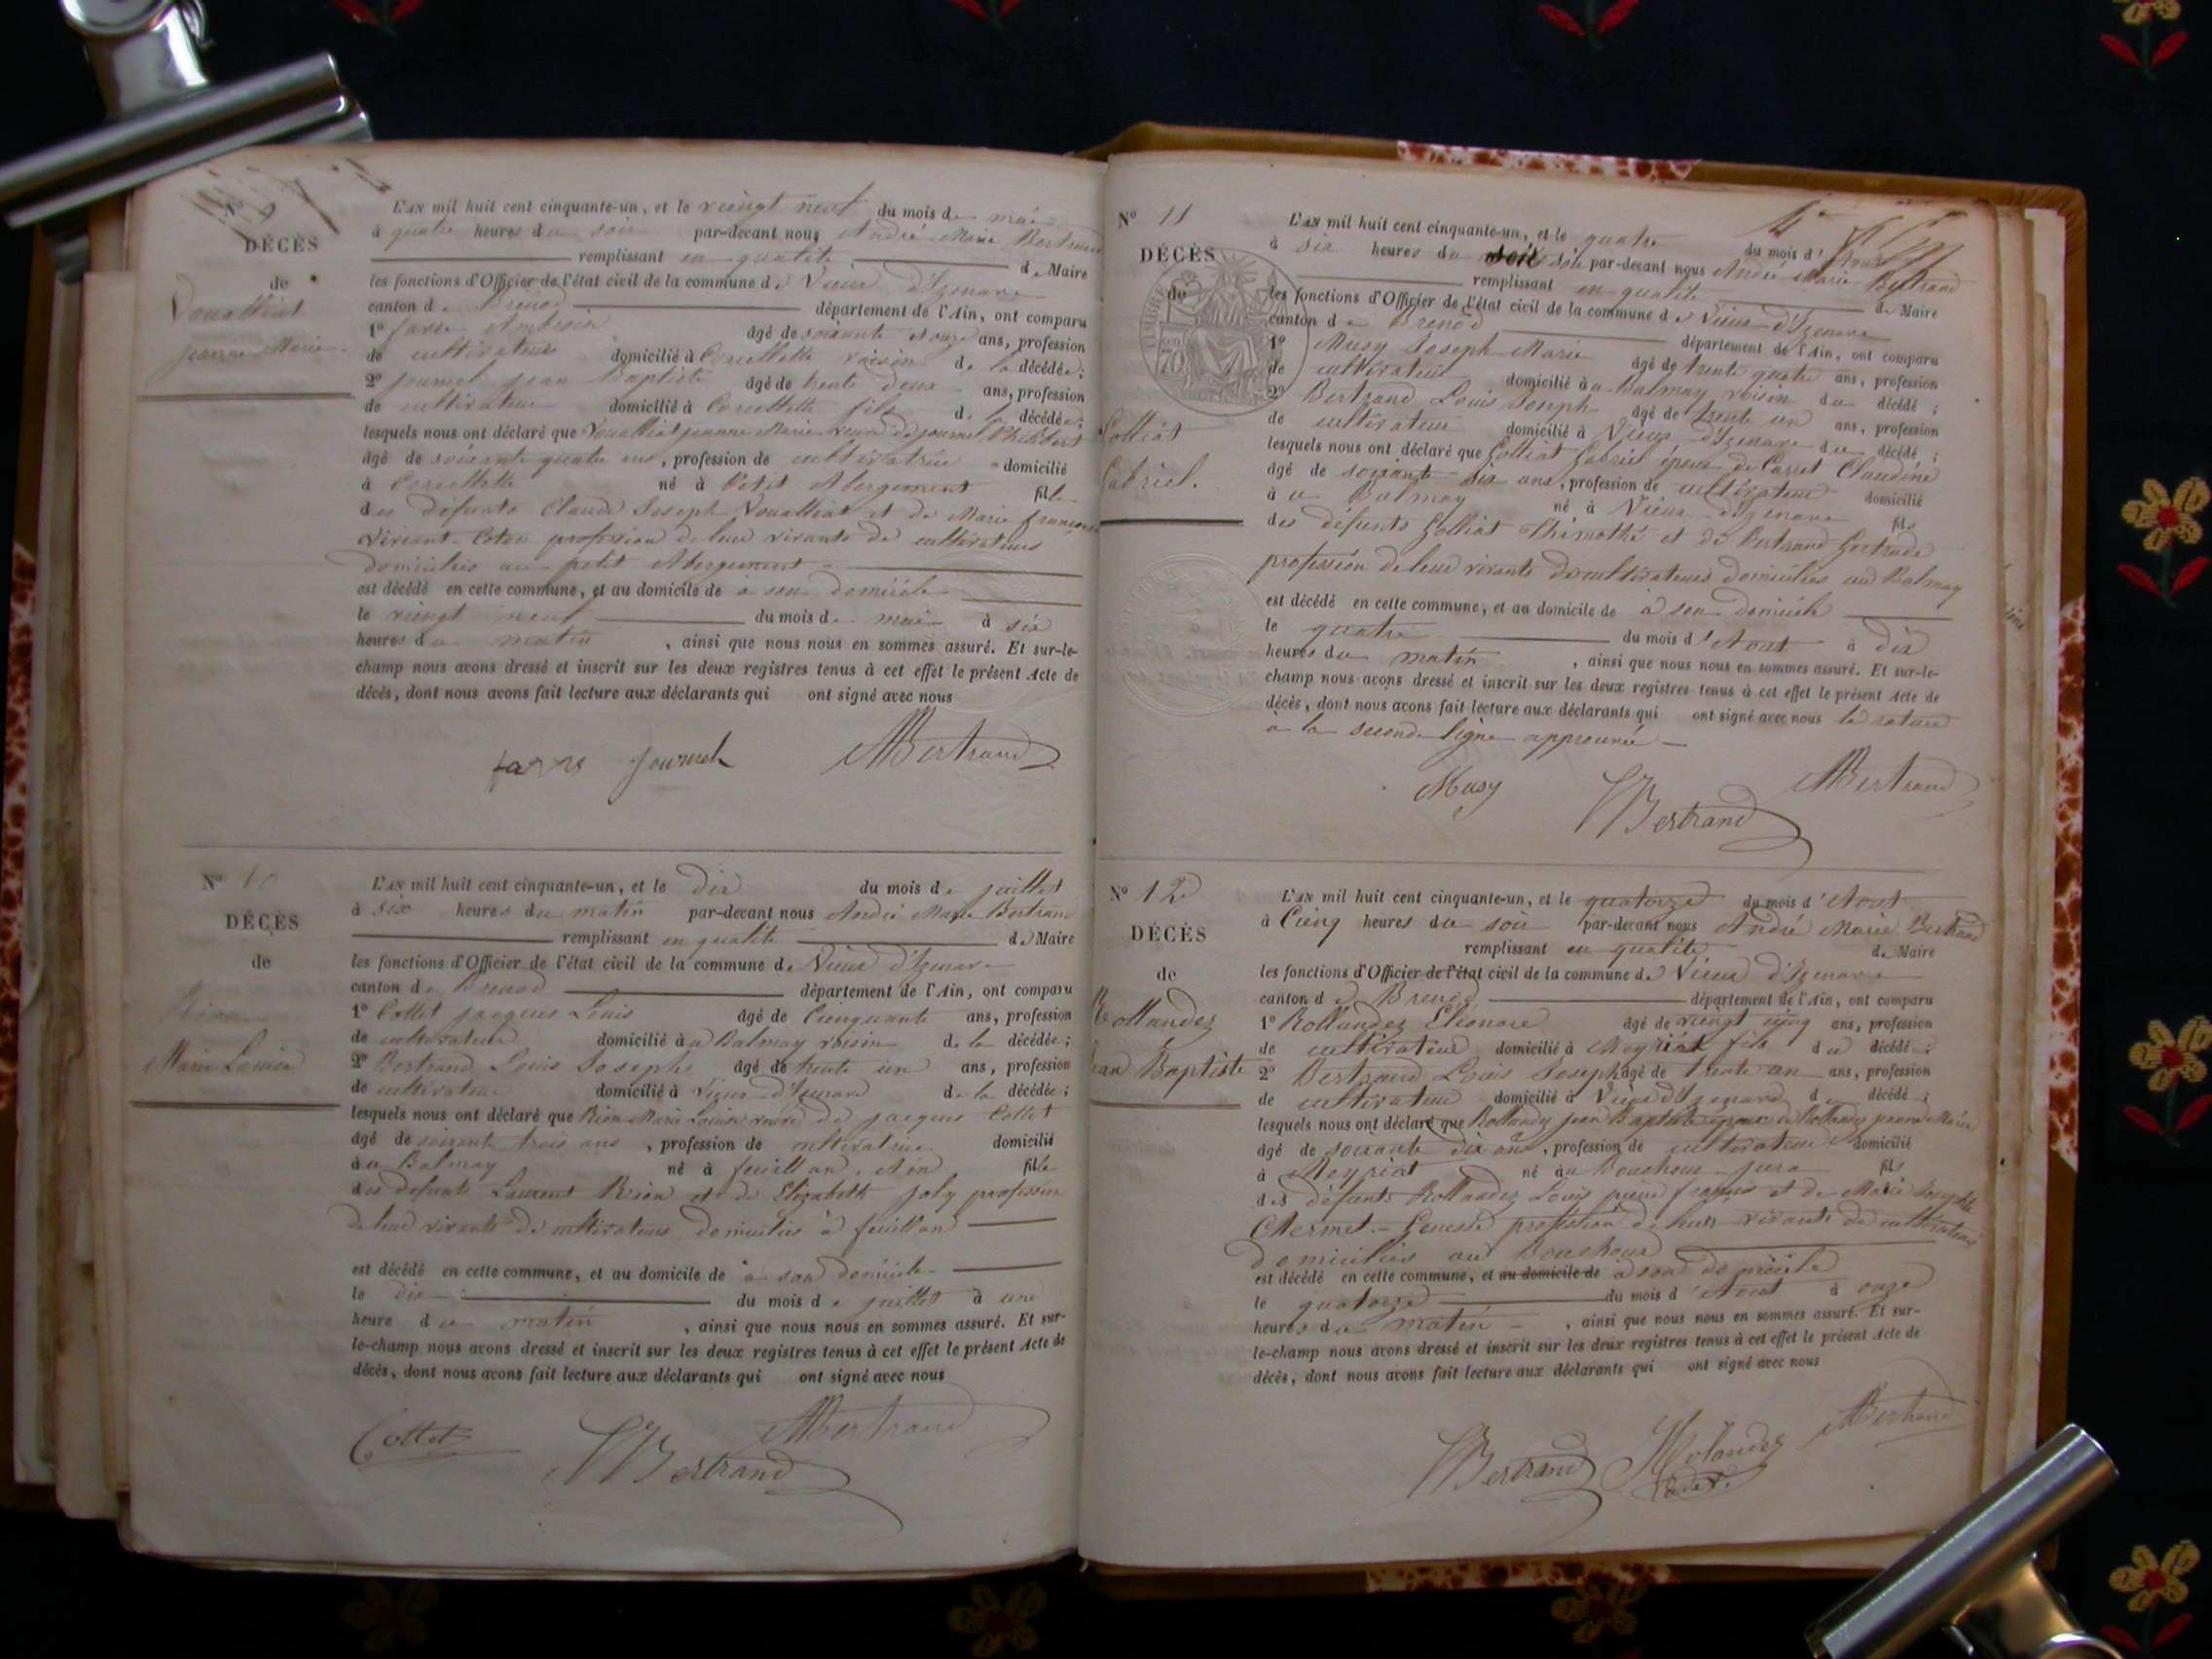 DÉCÈS
de
Vouallint
jeanne Marie
L'an mil huit cent cinquante-un, et le vieingt neuf du mois de mai
à quatre heures du soir par-devant nous André Marie Bertrand
remplissant en qualité de Maire
les fonctions d'Officier de l'état civil de la commune de Vieux d'Izenave
canton de Brenod département de l'Ain, ont comparu
1º favre Ambroise âgé de soixante et onze ans, profession
de cultivateur domicilié à Corcellette voisin de la décédée;
2º journel jean Baptiste âgé de trente deux ans, profession
de cultivateur domicilié à Corcellette fils de la décédée;
lesquels nous ont déclaré que Vouallint jeanne Marie veuve de journel Philibert
âgé de soixante quatre ans, profession de cultivatrice domicilié
à Corcellette né à Petit Abergement fille
des défunts Claude Joseph Vouallint et de Marie françoise
profession de leur vivants de cultivateurs
domiciliés au petit Abergement
est décédé en cette commune, et au domicile de à son domicile
le vieingt neuf du mois de mai à six
heures du matin, ainsi que nous nous en sommes assuré. Et sur-le-
champ nous avons dressé et inscrit sur les deux registres tenus à cet effet le présent Acte de
décès, dont nous avons fait lecture aux déclarants qui ont signé avec nous
favre journel ABertrand
Nº 10
DÉCÈS
de
Rion
Marie Louise
L'an mil huit cent cinquante-un, et le dix du mois de juillet
à six heures du matin par-devant nous André Marie Bertrand
remplissant en qualité de Maire
les fonctions d'Officier de l'état civil de la commune de Vieux d'Izenave
canton de Brenod département de l'Ain, ont comparu
1º Collet jacques Louis âgé de Cienquante ans, profession
de cultivateur domicilié à u Balmay voisin de la décédée;
2º Bertrand Louis Joseph âgé de trente un ans, profession
de cultivateur domicilié à Vieux d'Izenave de la décédée;
lesquels nous ont déclaré que Rion Marie Louise veuve de jacques Collet
âgé de soixante trois ans, profession de cultivatrice domicilié
à u Balmay né à feuillan, Ain fille
des defunts Laurent Rion et de Elizabeth Joly profession
de leur vivants de cultivateurs domiciliés à feuillan
est décédé en cette commune, et au domicile de à son domicile
le dix du mois de juillet à une
heure du matin, ainsi que nous nous en sommes assuré. Et sur-
le-champ nous avons dressé et inscrit sur les deux registres tenus à cet effet le présent Acte de
décès, dont nous avons fait lecture aux déclarants qui ont signé avec nous
Collet Bertrand ABertrand
Nº 11
DÉCÈS
de
Golliat
Gabriel.
TIMBRE
L'an mil huit cent cinquante-un, et le quatre du mois d'Aout
à six heures du soir par-devant nous André Marie Bertrand
remplissant en qualité de Maire
les fonctions d'Officier de l'état civil de la commune de Vieux d'Izenave
canton de Brenod département de l'Ain, ont comparu
1º Musy Joseph Marie âgé de trente quatre ans, profession
de cultivateur domicilié à u Balmay voisin du décédé;
2º Bertrand Louis Joseph âgé de trente un ans, profession
de cultivateur domicilié à Vieux d'Izenave du décédé;
lesquels nous ont déclaré que Golliat Gabriel époux de Carret Claudine
âgé de soixante six ans, profession de cultivateur domicilié
à u Balmay né à Vieux d'Izenave fils
des défunts Golliat Thimothé et de Bertrand Gertrude
profession de leur vivants de cultivateurs domiciliés au Balmay
est décédé en cette commune, et au domicile de à son domicile
le quatre du mois d'Aout à dix
heures du matin, ainsi que nous nous en sommes assuré. Et sur-le-
champ nous avons dressé et inscrit sur les deux registres tenus à cet effet le présent Acte de
décès, dont nous avons fait lecture aux déclarants qui ont signé avec nous la rature
à la seconde ligne approuvée
Musy Bertrand ABertrand
Nº 12
DÉCÈS
de
Rollandez
Jean Baptiste
L'an mil huit cent cinquante-un, et le quatorze du mois d'Aout
à Cinq heures du soir par-devant nous André Marie Bertrand
remplissant en qualité de Maire
les fonctions d'Officier de l'état civil de la commune de Vieux d'Izenave
canton de Brenod département de l'Ain, ont comparu
1º Rollandez Eléonore âgé de vieingt cinq ans, profession
de cultivateur domicilié à Meyriat fils du décédé;
2º Bertrand Louis Joseph âgé de trente un ans, profession
de cultivateur domicilié à Vieux d'Izenave du décédé;
lesquels nous ont déclaré que Rollandez jean Baptiste époux de Rollandez jeanne Marie
âgé de soixante dix ans, profession de cultivateur domicilié
à Meyriat né au Bouchoux jura fils
des défunts Rollandez Louis pierre françois et de Marie Josephte
Chermet-Genesse profession de leurs vivants de cultivateurs
domiciliés au Bouchoux
est décédé en cette commune, et au domicile de à son domicile
le quatorze du mois d'Aout à onze
heures du matin, ainsi que nous nous en sommes assuré. Et sur-
le-champ nous avons dressé et inscrit sur les deux registres tenus à cet effet le présent Acte de
décès, dont nous avons fait lecture aux déclarants qui ont signé avec nous
Bertrand Rolandez Cadet. ABertrand